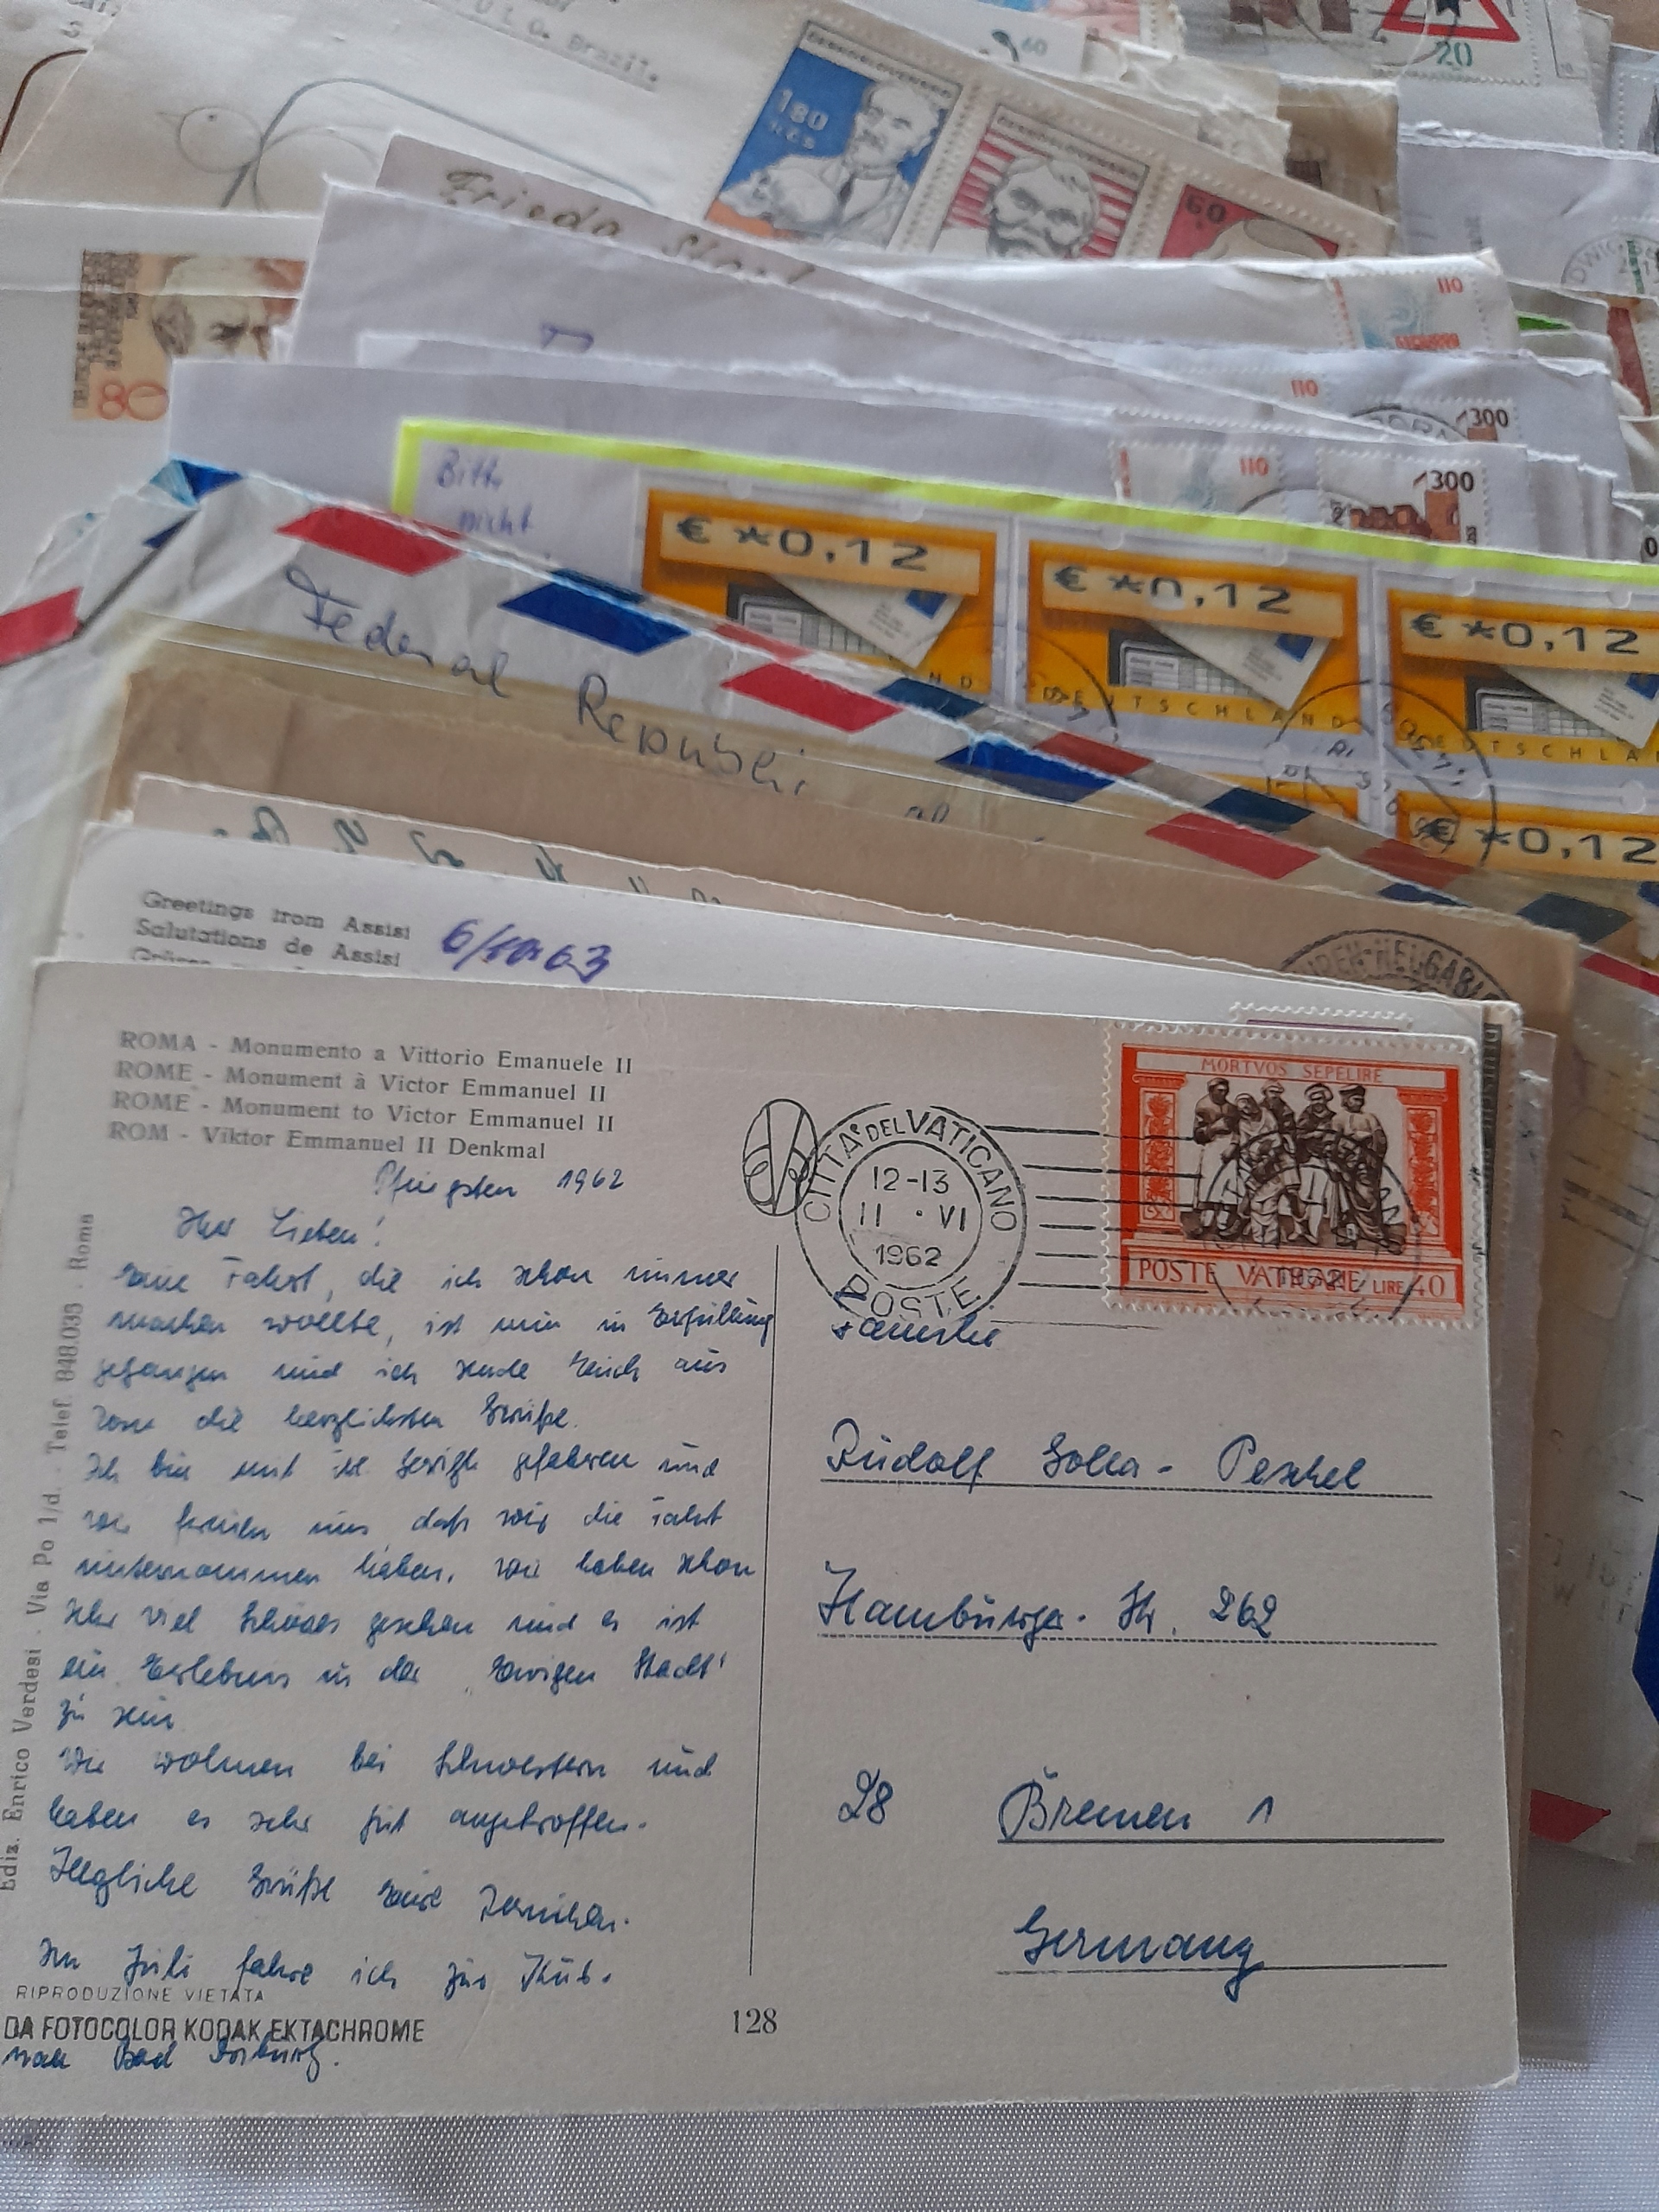 LO. Brazil.
60
20
ČESKOSLOVENSKO
1,80
Kčs
ČESKOSLOVENSKO
60
Frieda
80
110
110
1300
110
1300
Bitte
nicht
€ *0,12
€ *0,12
€ *0,12
DEUTSCHLAND
DEUTSCHLA
€ *0,12
Federal Republic
Greetings from Assisi
Salutations de Assisi
6/10 63
ROMA - Monumento a Vittorio Emanuele II
ROME - Monument à Victor Emmanuel II
ROME - Monument to Victor Emmanuel II
ROM - Viktor Emmanuel II Denkmal
Pfingsten 1962
Ihr Lieben!
Eine Fahrt, die ich schon immer
machen wollte, ist nun in Erfüllung
gegangen und ich sende Euch aus
Rom die herzlichsten Grüße.
Ich bin mit gefahren und
wir freuen uns daß wir die Fahrt
unternommen haben. Wir haben schon
sehr viel Schönes gesehen und es ist
ein Erlebnis in der "Ewigen Stadt"
zu sein
Wir wohnen bei Schwestern und
haben es sehr gut angetroffen.
Herzliche Grüße Eure
Im Juli fahre ich zur Kur.
nach Bad
RIPRODUZIONE VIETATA
DA FOTOCOLOR KODAK EKTACHROME
Ediz. Enrico Verdesi - Via Po 1/d. - Telef. 848.038 - Roma
128
CITTÀ DEL VATICANO
12-13
11 · VI
1962
POSTE
MORTVOS SEPELIRE
POSTE VATICANE LIRE 40
Familie
Rudolf Peschel
Hamburger Str. 262
28 Bremen 1
Germany